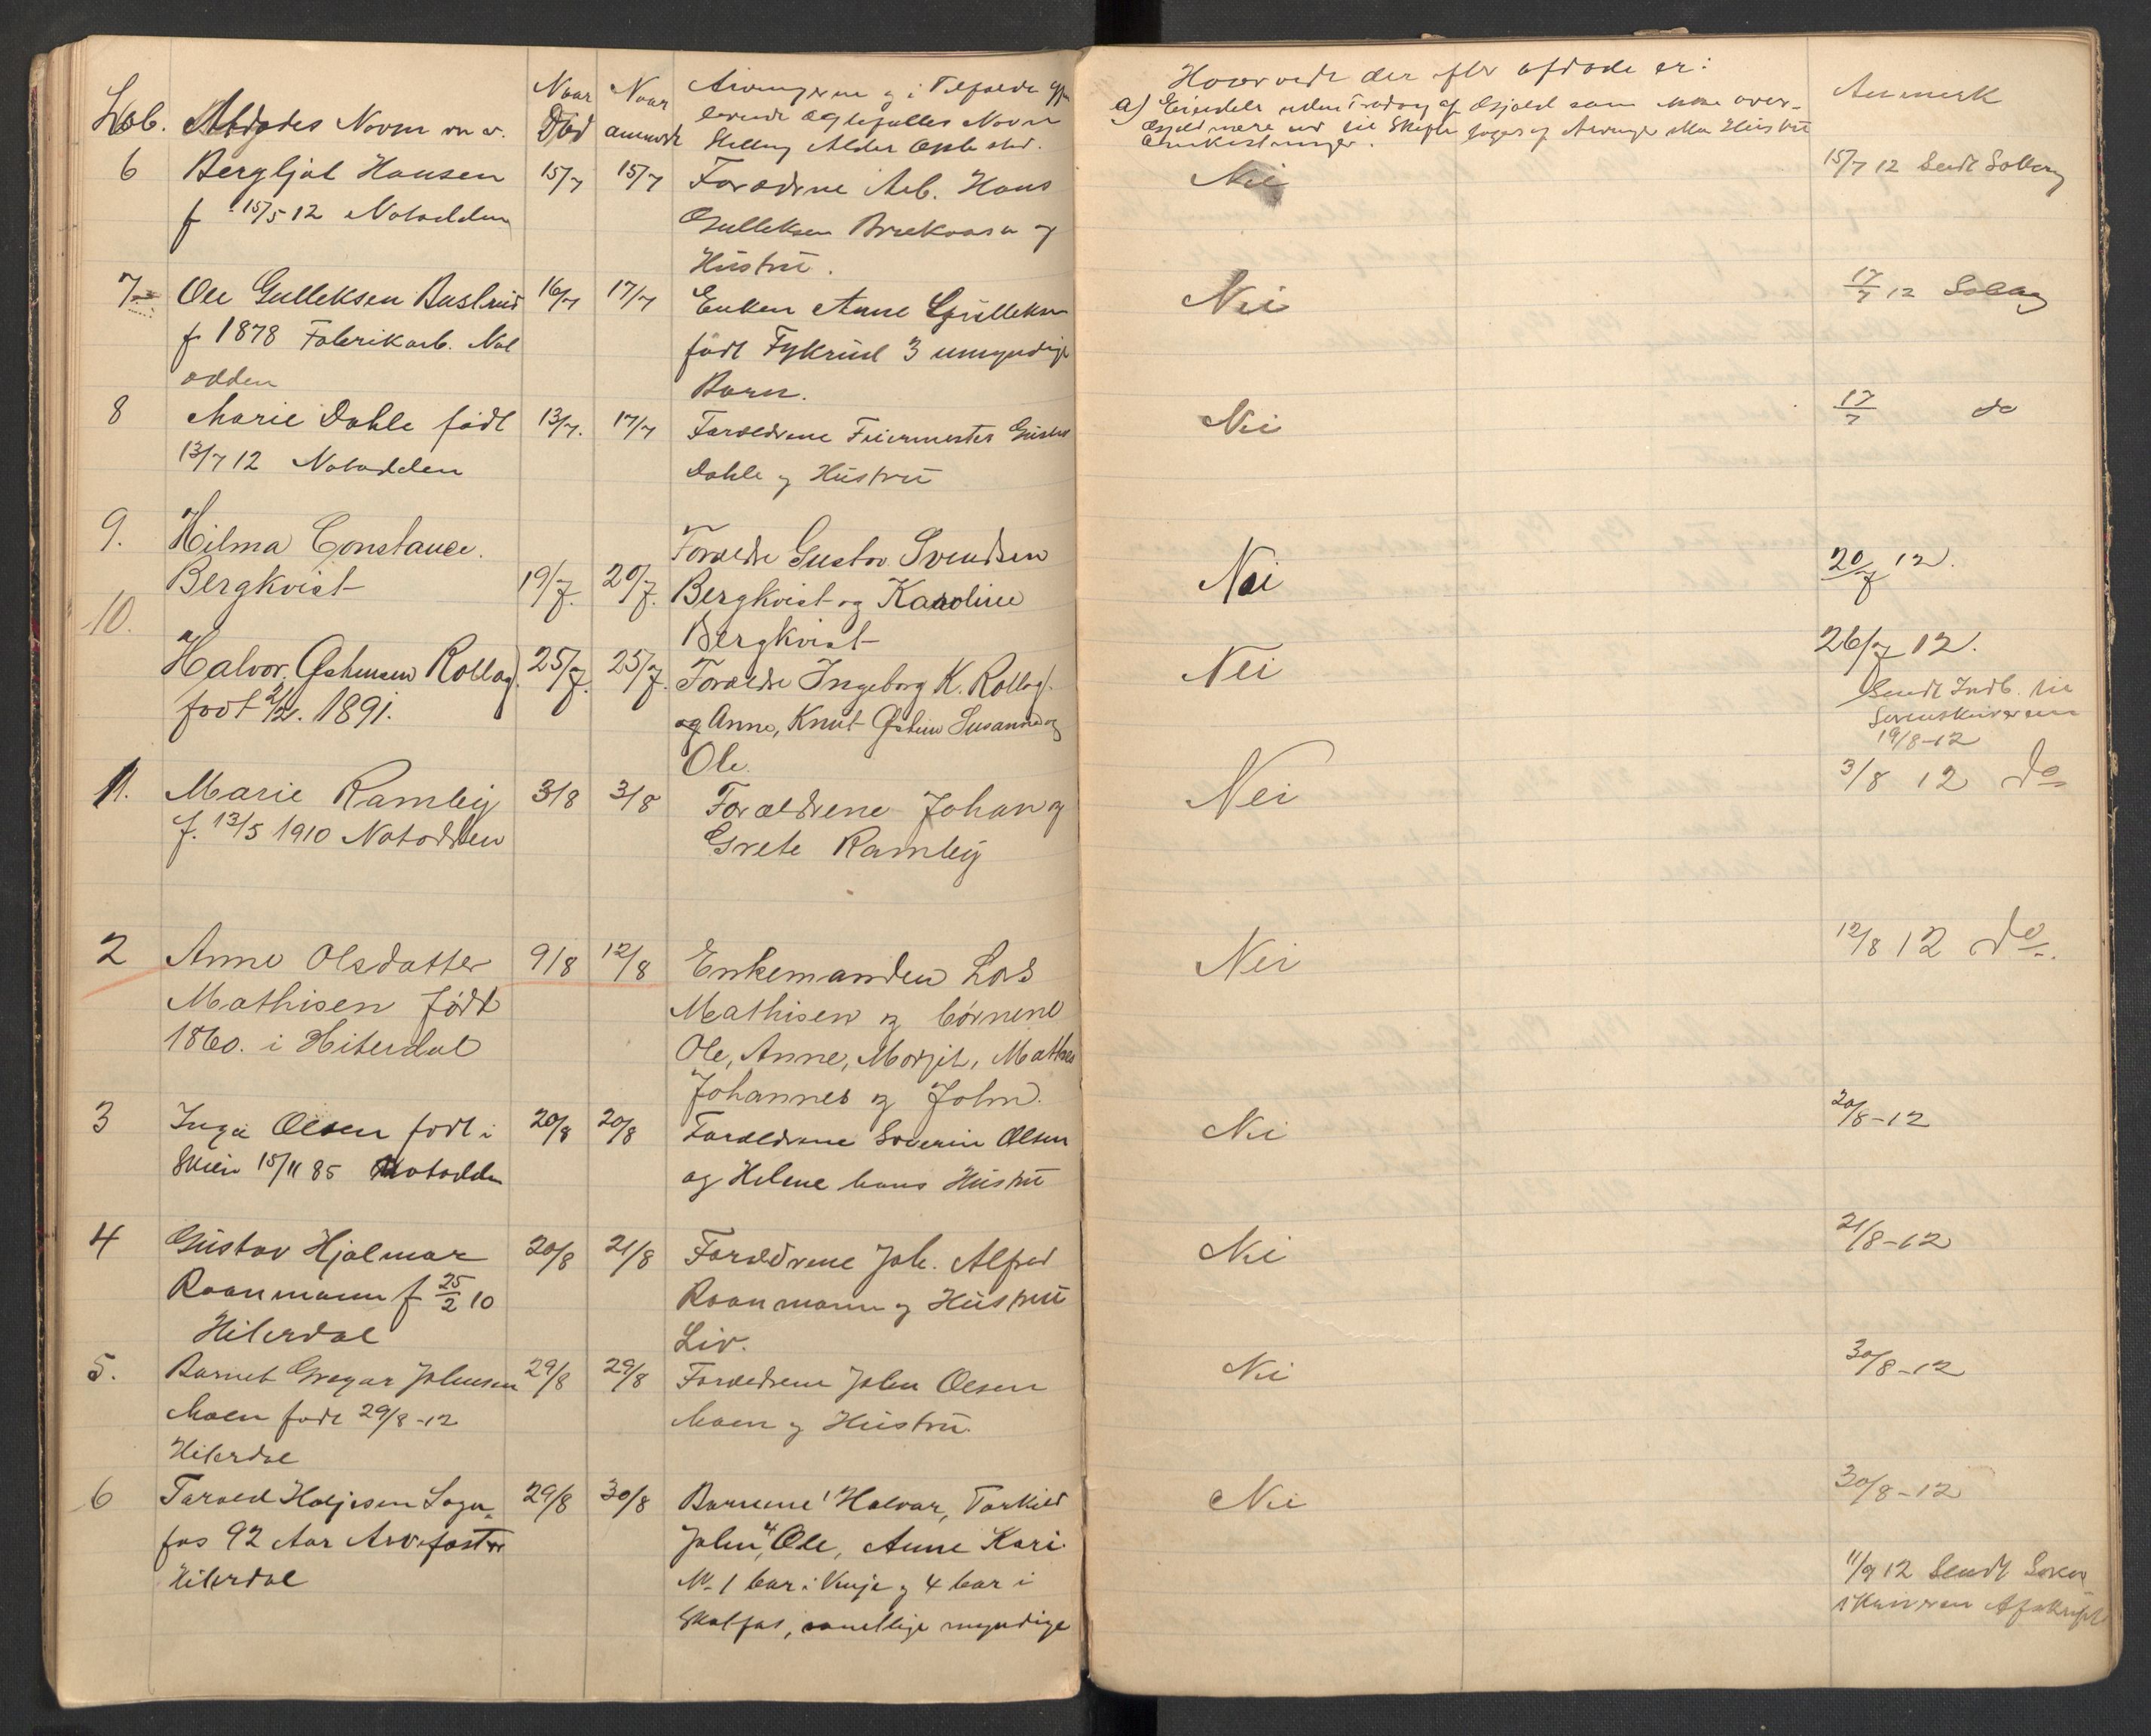 Lob. Afdødes Navn m. v. Naar Død Naar anmeldt Arvingerne og i Tilfælde Gjen-
levende Ægtefælles Navn
Stilling Alder Opholdssted.
Hvorvidt der efter afdøde er:
a) Eiendele uden Fradrag af Gjæld som
Anmerk
6 Bergljot Hansen 15/7 15/7 Forældrene Arb. Hans Nei 15/7 12 Sendt Solberg
f 15/5 12 Notodden Gulleksen Brekaasa og
Hustru.
7 Ole Gulleksen Bustrud 16/7 17/7 Enken Anne Gulleksen Nei 17/7 12 Solberg
f 1878 Fabrikarb. Not født Fykrud 3 umyndige
odden Børn.
8 Marie Dahle født 13/7. 17/7 Forældrene Feiermester Gustav Nei 17/7 do
13/7 12 Notodden Dahle og Hustru
9. Hilma Constance. Forældre Gustav Svendsen
Bergkvist 19/7. 20/7. Bergkvist og Karoline Nei 20/7 12.
10. Bergkvist
Halvor Østensen Rollag. 25/7. 25/7. Forældre Ingeborg K. Rollag. Nei 26/7 12.
født 2/12. 1891. og Anne, Knut Østein Susanne og Sendt Indb. til
Ole. Sorenskriveren
19/8-12
11. Marie Ramley 3/8 3/8 Forældrene Johan og Nei 3/8 12 do
f. 13/5 1910 Notodden Grete Ramley
2 Anne Olsdatter 9/8 12/8 Enkemanden Lars Nei 12/8 12 do.
Mathisen født Mathisen og børnene
1860. i Hiterdal Ole, Anne, Margit, Mathias
Johannes og John.
3 Inga Olsen født i 20/8 20/8 Forældrene Severin Olsen Nei 20/8-12
Skien 15/11 85 Notodden og Helene hans Hustru
4 Gustav Hjalmar 20/8 21/8 Forældrene Joh. Alfred Nei 21/8-12
Roanmann f 25/2 10 Roanmann og Hustru
Hiterdal Liv.
5. Barnet Gregar Johnsen 29/8 29/8 Forældrene John Olsen Nei 30/8-12
Moen født 29/8-12 Moen og Hustru.
Hiterdal
6 Tarald Holjesen Saga- 29/8 30/8 Børnene 1 Halvar, Torkild Nei 30/8-12
fos 92 Aar John, 4 Ole, Anne Kari.
Hiterdal No 1 bor i Vinje og 4 bor i 11/9 12 Sendt Soren
Skotfos, samtlige myndige skriveren Afskrift